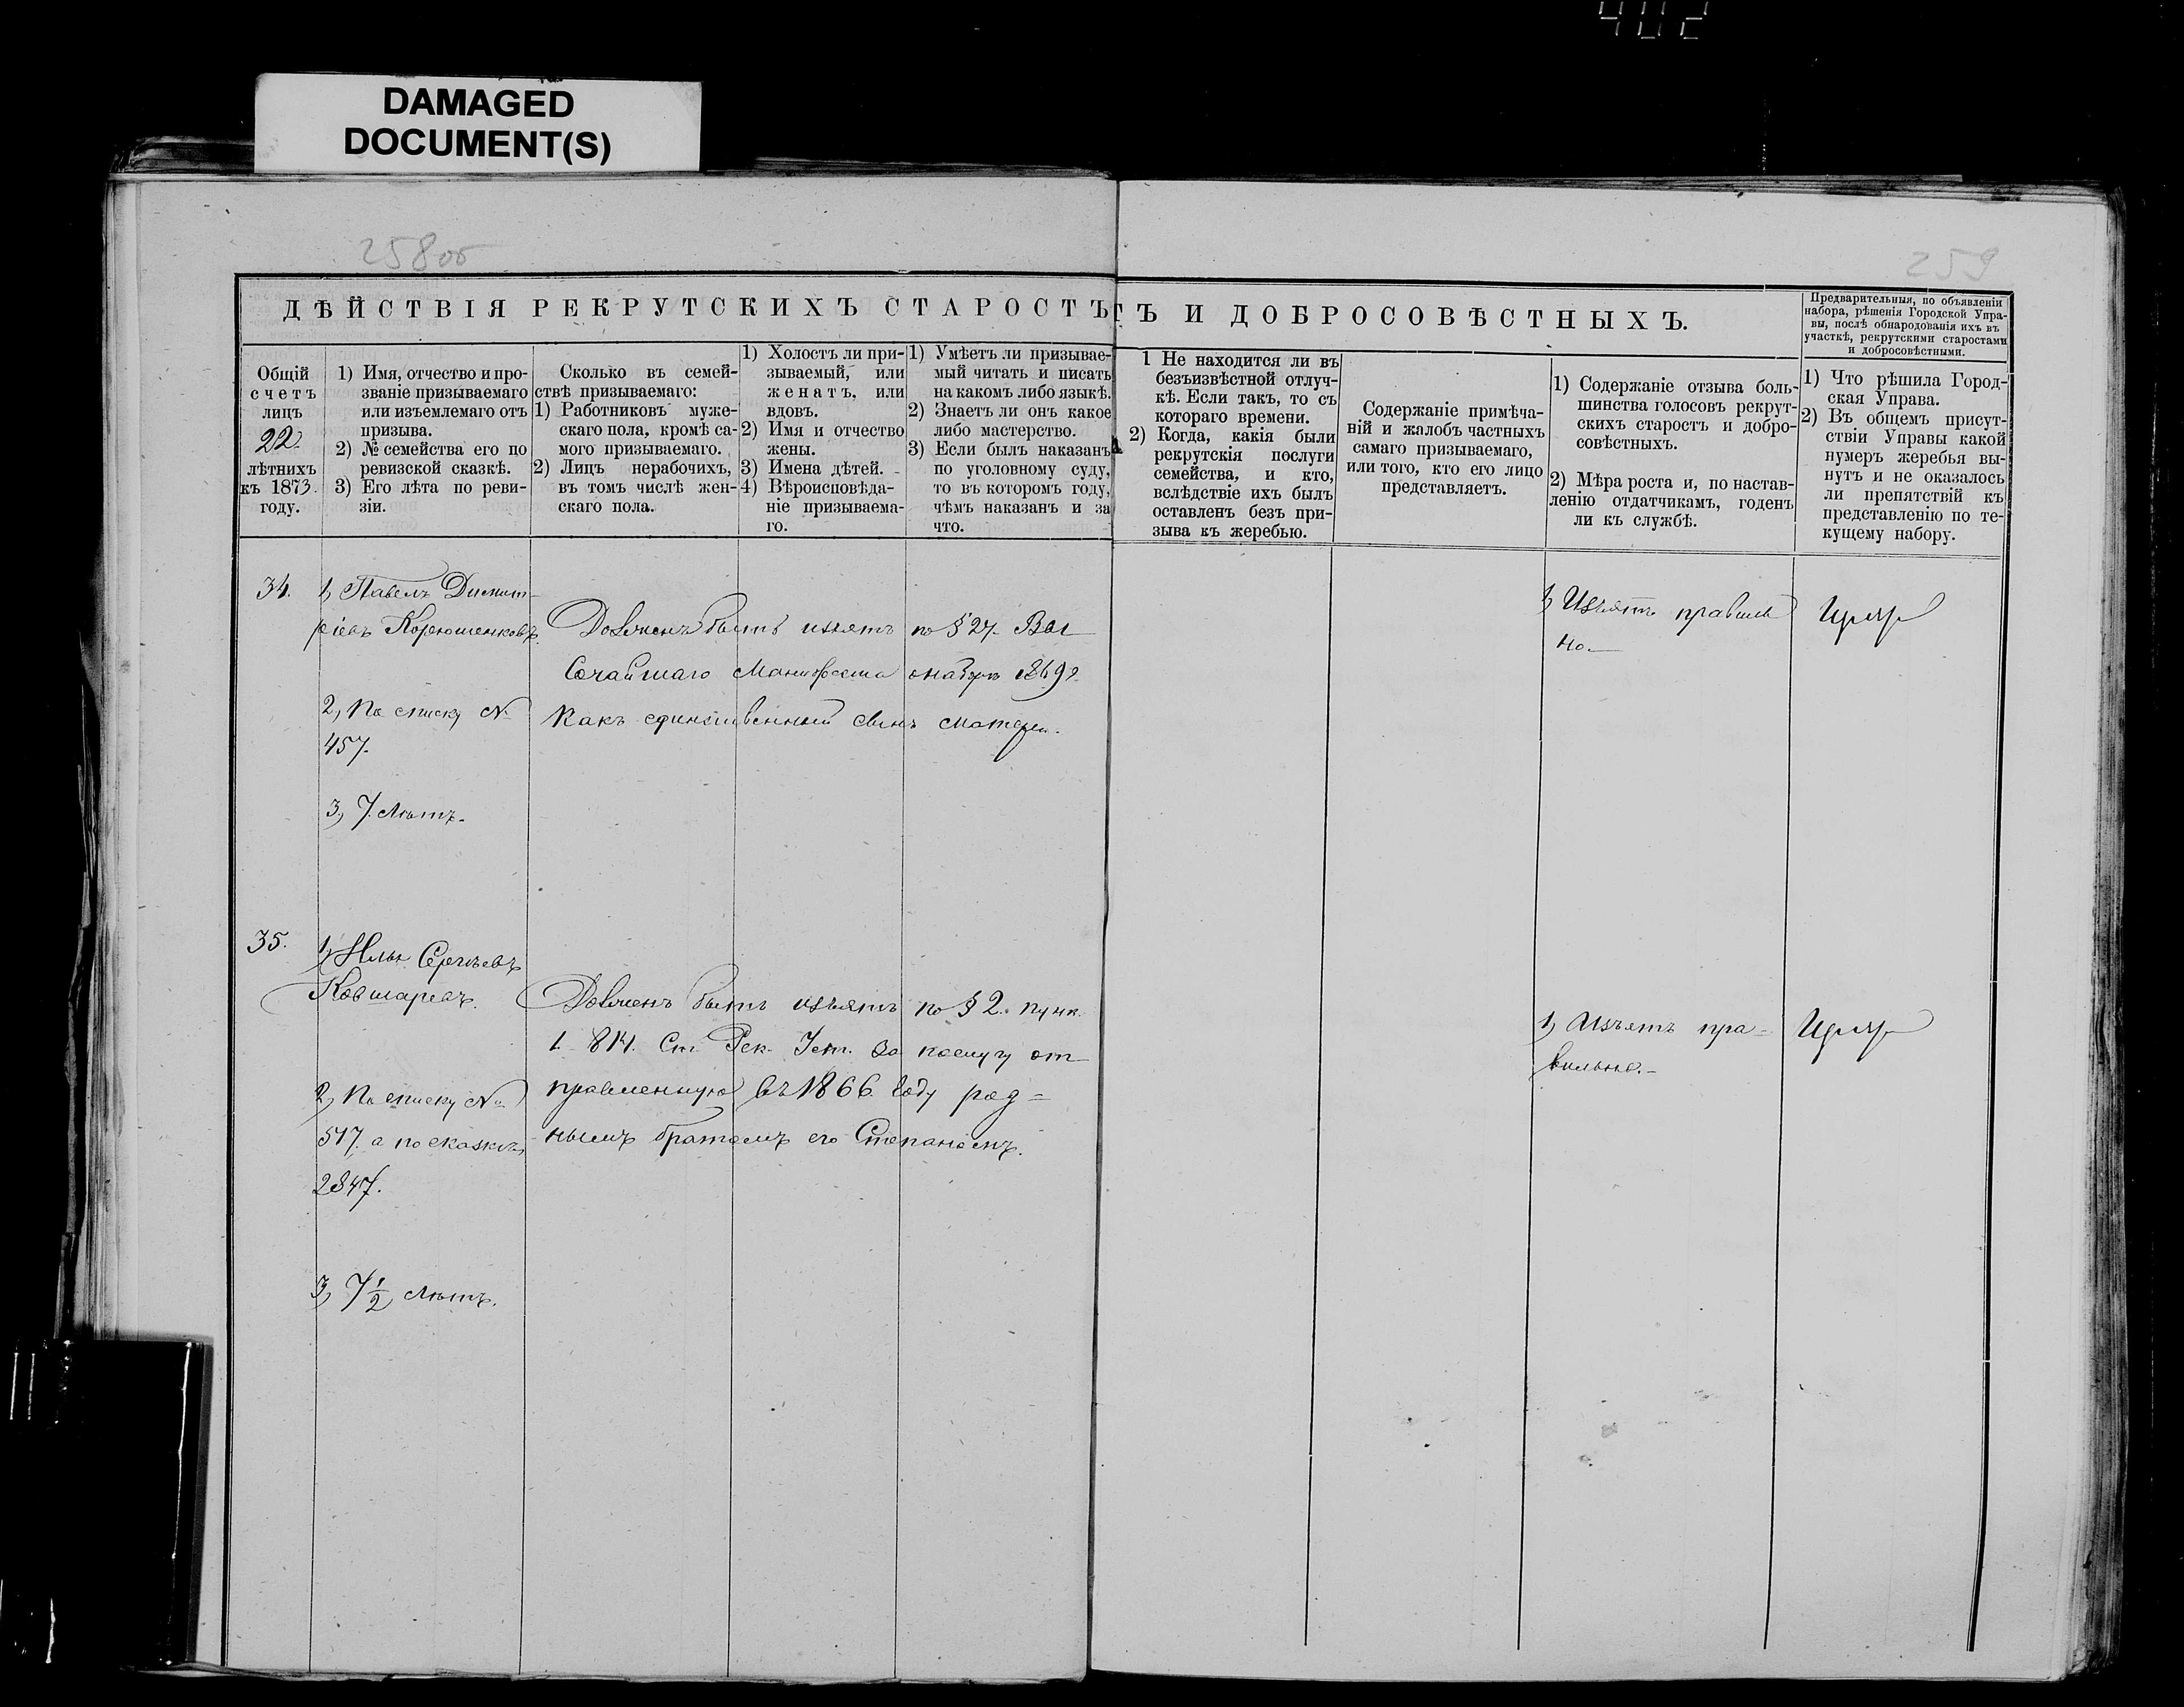 402
DAMAGED
DOCUMENT(S)
258об
259
ДѢЙСТВІЯ РЕКРУТСКИХЪ СТАРОСТЪ
ТЪ И ДОБРОСОВѢСТНЫХЪ.
Предварительныя, по объявленіи
набора, рѣшенія Городской Упра-
вы, послѣ обнародованія ихъ въ
участкѣ, рекрутскими старостами
и добросовѣстными.
Общій
счетъ
лицъ
22
лѣтнихъ
къ 1873.
году.
1) Имя, отчество и про-
званіе призываемаго
или изъемлемаго отъ
призыва.
2) № семейства его по
ревизской сказкѣ.
3) Его лѣта по реви-
зіи.
Сколько въ семей-
ствѣ призываемаго:
1) Работниковъ муже-
скаго пола, кромѣ са-
мого призываемаго.
2) Лицъ нерабочихъ,
въ томъ числѣ жен-
скаго пола.
1) Холостъ ли при-
зываемый, или
женатъ, или
вдовъ.
2) Имя и отчество
жены.
3) Имена дѣтей.
4) Вѣроисповѣда-
ніе призываема-
го.
1) Умѣетъ ли призывае-
мый читать и писать
на какомъ либо языкѣ.
2) Знаетъ ли онъ какое
либо мастерство.
3) Если былъ наказанъ
по уголовному суду,
то въ которомъ году,
чѣмъ наказанъ и за
что.
1 Не находится ли въ
безъизвѣстной отлуч-
кѣ. Если такъ, то съ
котораго времени.
2) Когда, какія были
рекрутскія послуги
семейства, и кто,
вслѣдствіе ихъ былъ
оставленъ безъ при-
зыва къ жеребью.
Содержаніе примѣча-
ній и жалобъ частныхъ
самаго призываемаго,
или того, кто его лицо
представляетъ.
1) Содержаніе отзыва боль-
шинства голосовъ рекрут-
скихъ старостъ и добро-
совѣстныхъ.
2) Мѣра роста и, по настав-
ленію отдатчикамъ, годенъ
ли къ службѣ.
1) Что рѣшила Город-
ская Управа.
2) Въ общемъ присут-
ствіи Управы какой
нумеръ жеребья вы-
нутъ и не оказалось
ли препятствій къ
представленію по те-
кущему набору.
34.
1, Павелъ Димит-
ріевъ Корюшенковъ.
2, По списку №
457.
3, 7. лѣтъ.
Долженъ быть изъятъ по § 27. Вы
сочайшаго Манифеста о наборѣ 1869 г.
какъ единственный сынъ матери.
1, Изъятъ правиль
но.
35.
1, Илья Сергѣевъ
Ковшаревъ.
2, По списку №
517. а по сказкѣ
2847.
3, 7 1/2 лѣтъ.
Долженъ быть изъятъ по § 2. пунк.
1. 814. Ст. Рек. Уст. за послугу от
правленную въ 1866. году род=
нымъ братомъ его Степаномъ.
1, Изъятъ пра-
вильно.-